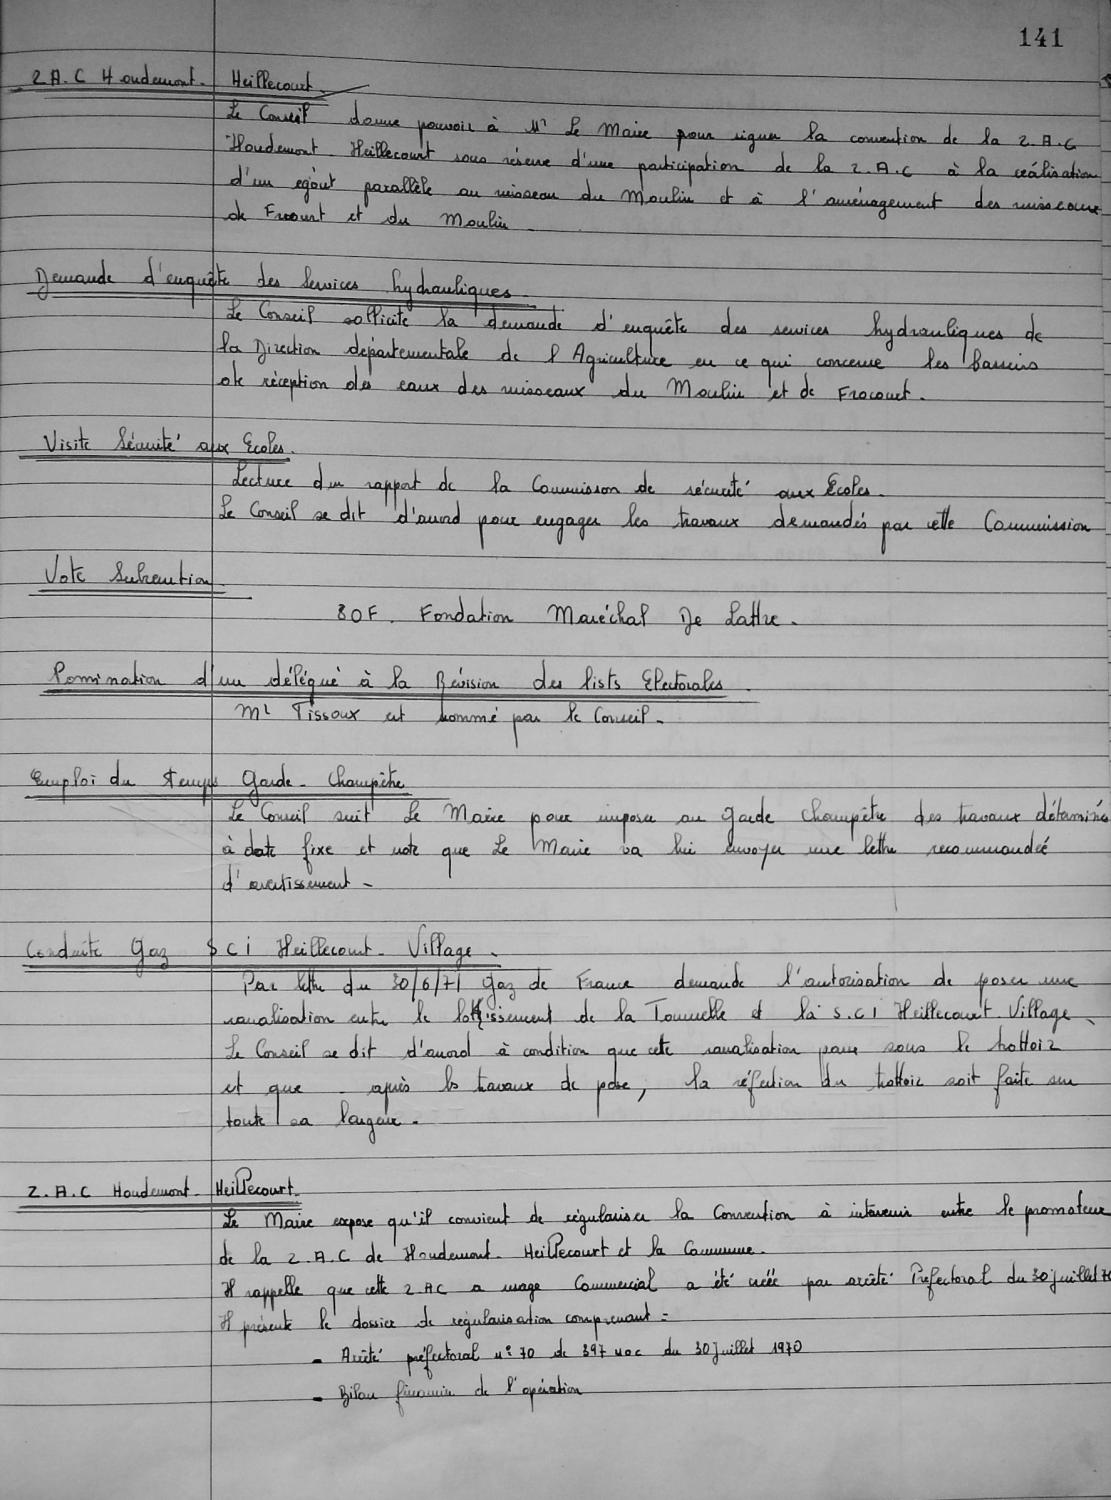 141
Z.A.C Houdemont. Heillecourt.
Le Conseil donne pouvoir à Mr Le Maire pour signer la convention de la Z.A.C
Houdemont. Heillecourt sous réserve d'une participation de la Z.A.C à la réalisation
d'un egôut parallèle au ruisseau du Moulin et à l'aménagement des ruisseaux
de Frocourt et du Moulin.
Demande d'enquête des Services hydrauliques.
Le Conseil sollicite la demande d'enquête des services hydrauliques de
la Direction départementale de l'Agriculture en ce qui concerne les bassins
de réception des eaux des ruisseaux du Moulin et de Frocourt.
Visite Sécurité aux Ecoles.
Lecture du rapport de la Commission de sécurité aux Ecoles.
Le Conseil se dit d'accord pour engager les travaux demandés par cette Commission
Vote Subvention
30F. Fondation Maréchal De Lattre.
Nomination d'un délégué à la Révision des lists Electorales.
Mr Tissoux est nommé par le Conseil.
Emploi du temps Garde-Champêtre
Le Conseil suit Le Maire pour imposer au garde champêtre des travaux déterminés
à date fixe et note que Le Maire va lui envoyer une lettre recommandée
d'avertissement.
Conduite Gaz SCI Heillecourt. Village.
Par lettre du 30/6/71 Gaz de France demande l'autorisation de poser une
canalisation entre le lotissement de la Tournelle et la S.C.I Heillecourt Village.
Le Conseil se dit d'accord à condition que cette canalisation passe sous le trottoir
et que après les travaux de pose, la réfection du trottoir soit faite sur
toute sa largeur.
Z.A.C Houdemont. Heillecourt.
Le Maire expose qu'il convient de régulariser la Convention à intervenir entre le promoteur
de la Z.A.C de Houdemont. Heillecourt et la Commune.
Il rappelle que cette ZAC a usage Commercial a été créée par arrêté Préfectoral du 30 juillet 70
Il présente le dossier de régularisation comprenant :
- Arrêté préfectoral n° 70 de 397 du 30 juillet 1970
- Bilan financier de l'opération